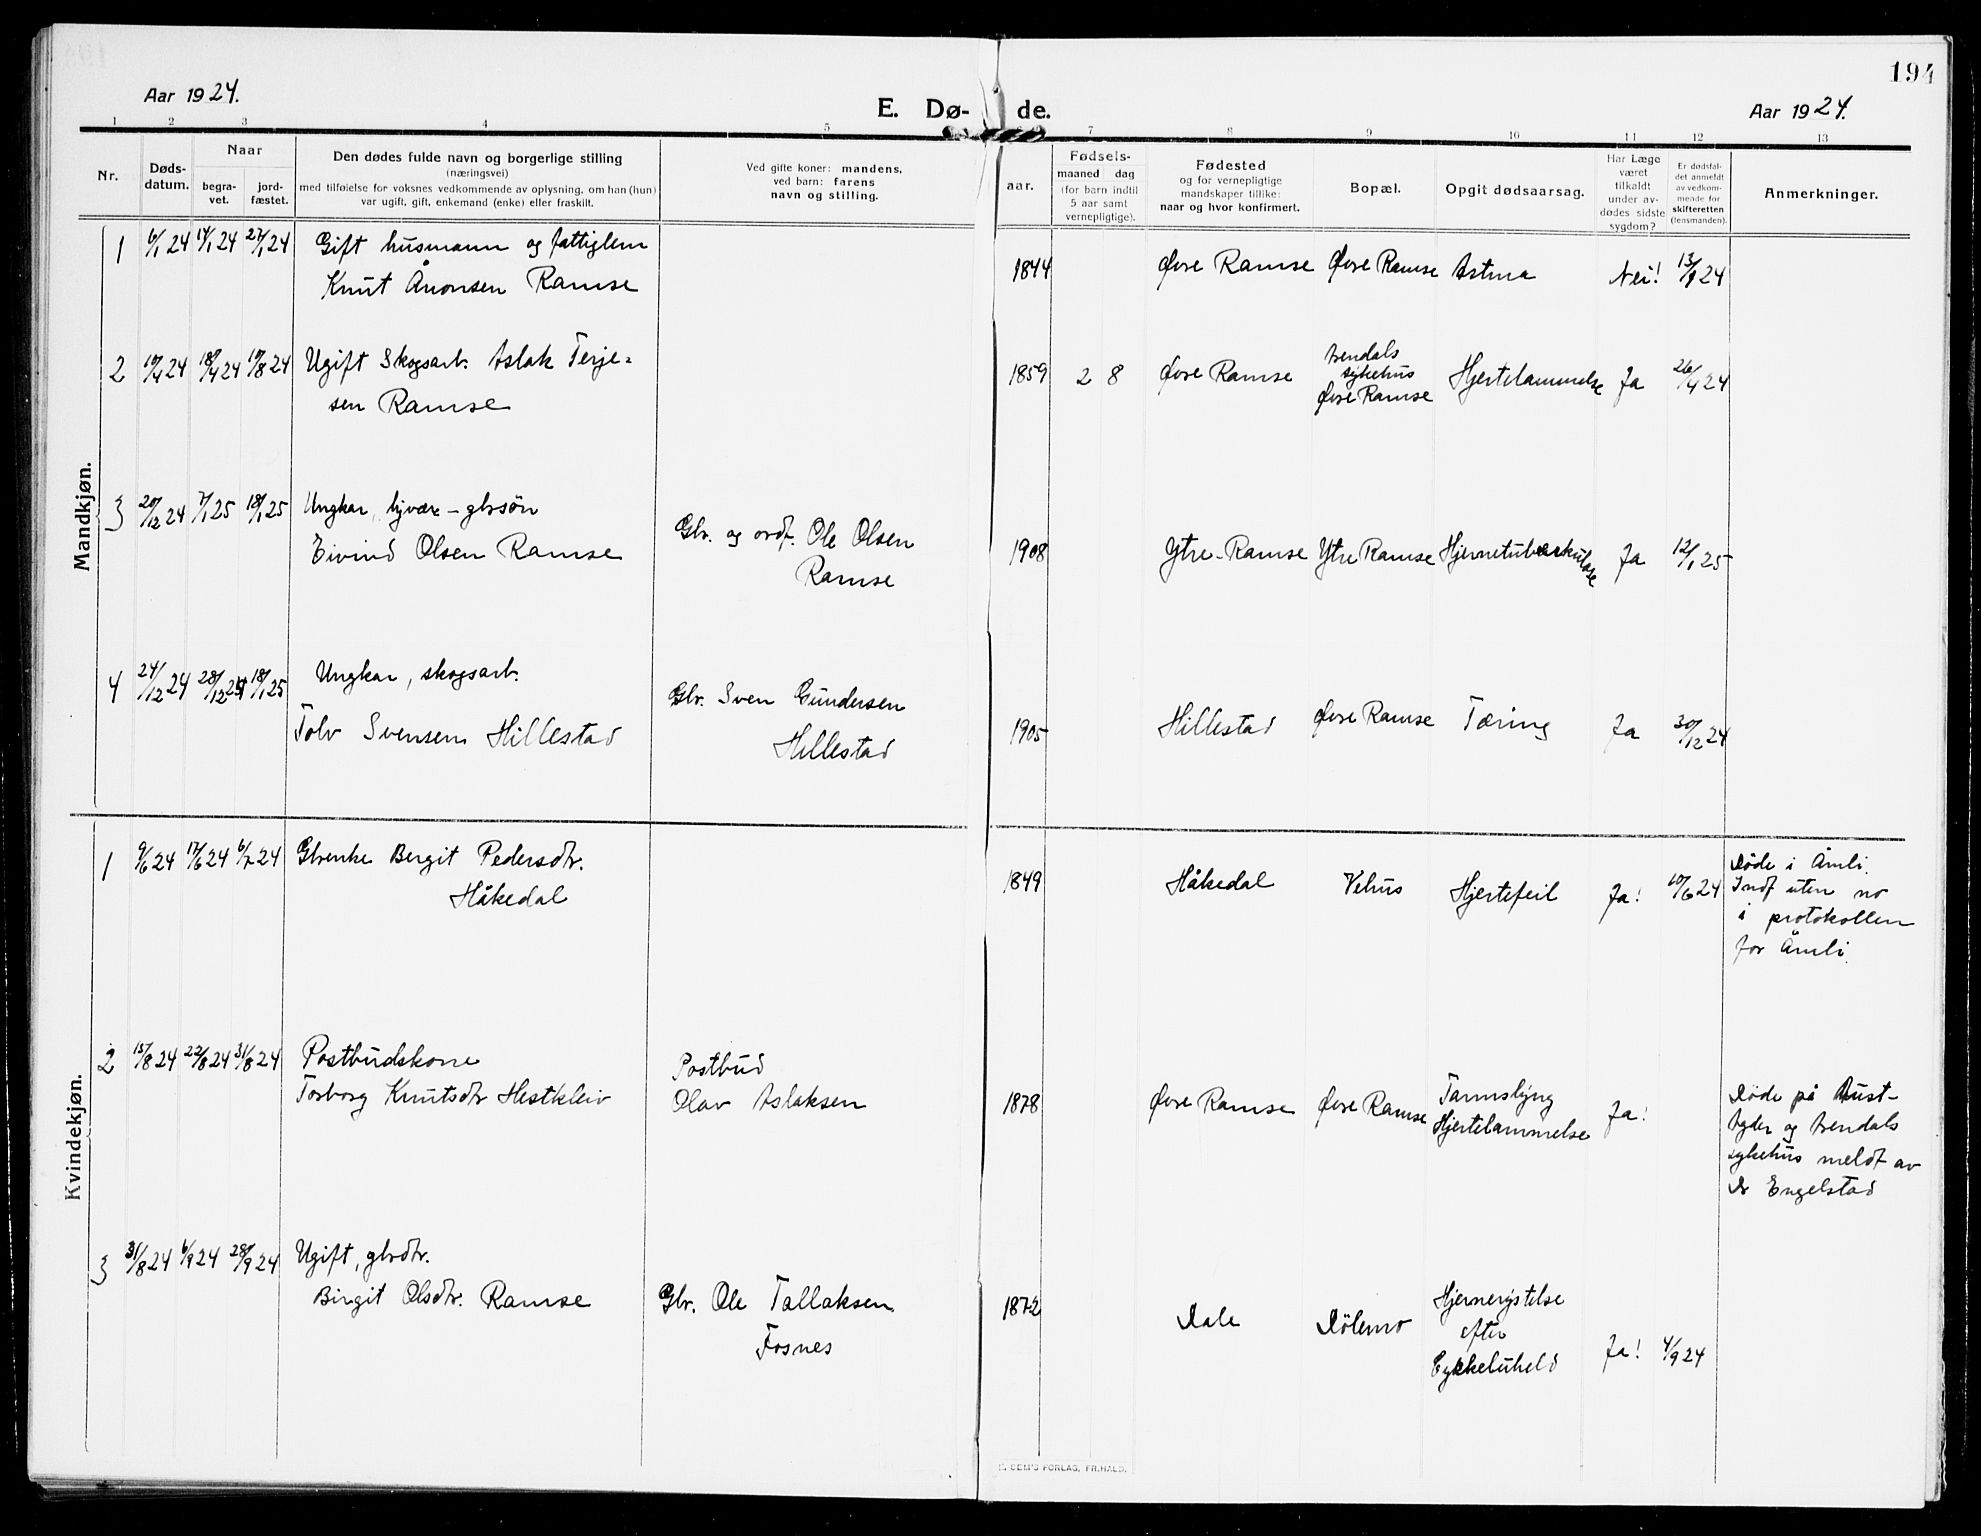 194
Aar 1924.
E. Dø- de.
Aar 1924.
1 2 3 4 5 7 8 9 10 11 12 13
Nr.
Døds-
datum.
Naar
begra-
vet.
jord-
fæstet.
Den dødes fulde navn og borgerlige stilling
(næringsvei)
med tilføielse for voksnes vedkommende av oplysning, om han (hun)
var ugift, gift, enkemand (enke) eller fraskilt.
Ved gifte koner: mandens,
ved barn: farens
navn og stilling.
aar.
Fødsels-
maaned dag
(for barn indtil
5 aar samt
vernepligtige).
Fødested
og for vernepligtige
mandskaper tillike:
naar og hvor konfirmert.
Bopæl.
Opgit dødsaarsag.
Har Læge
været
tilkaldt
under av-
dødes sidste
sygdom?
Er dødsfal-
det anmeldt
av vedkom-
mende for
skifteretten
(lensmanden).
Anmerkninger.
Mandkjøn.
1 6/1 24 14/1 24 27/1 24 Gift husmann og fattiglem
Knut Ånonsen Ramse
1844 Øvre Ramse Øvre Ramse Astma Nei! 13/1 24
2 10/4 24 18/4 24 17/8 24 Ugift Skogsarb. Aslak Terje-
sen Ramse
1859 2 8 Øvre Ramse
Arendals
sykehus
Øvre Ramse
Hjertelammelse Ja 26/4 24
3 20/12 24 7/1 25 18/1 25 Ungkar, hjvær-gbrsøn
Eivind Olsen Ramse
Gbr. og ordf. Ole Olsen
Ramse
1908 Ytre-Ramse Ytre Ramse Hjernetuberkulose Ja 12/1 25
4 24/12 24 28/12 24 18/1 25 Ungkar, skogsarb.
Tolv Svensen Hillestad
Gbr. Sven Gundersen
Hillestad
1905 Hillestad Øvre Ramse Tæring Ja 30/12 24
Kvindekjøn.
1 9/6 24 17/6 24 6/7 24 Gbrenke Bergit Pedersdtr.
Håkedal
1849 Håkedal Vehus Hjertefeil Ja! 10/6 24
Døde i Åmli.
Indf uten no
i protokollen
for Åmli.
2 15/8 24 22/8 24 31/8 24 Postbudskone
Torborg Knutsdtr Hestkleiv
Postbud
Olav Aslaksen
1878 Øvre Ramse Øvre Ramse
Tarmslyng
Hjertelammelse
Ja!
Døde på Aust-
Agder og Arendals
sykehus meldt av
Dr Engelstad
3 31/8 24 6/9 24 28/9 24 Ugift, gbrdtr.
Birgit Olsdtr. Ramse
Gbr. Ole Tallaksen
Fosnes
1872 Dale Dølemo
Hjernerystelse
efter
Cykkeluheld
Ja! 4/9 24
FORLAG, FR.HALD.